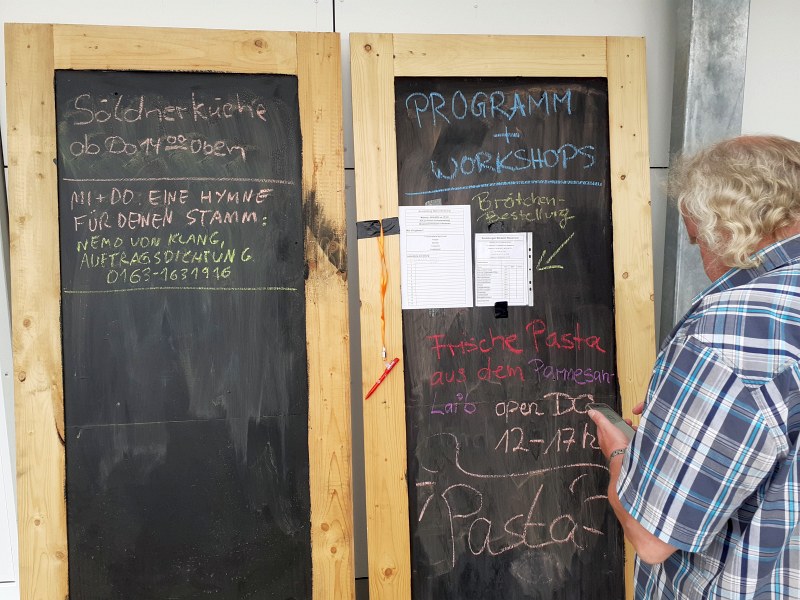 Söldnerküche
ab Do 14 00 Oben
MI + DO: EINE HYMNE
FÜR DENEN STAMM:
NEMO VON KLANG,
AUFTRAGSDICHTUNG
0163-1631916
PROGRAMM
+
WORKSHOPS
Brötchen-
Bestellung
Frische Pasta
aus dem Parmesan-
Laib open DO
12-17h
Pasta